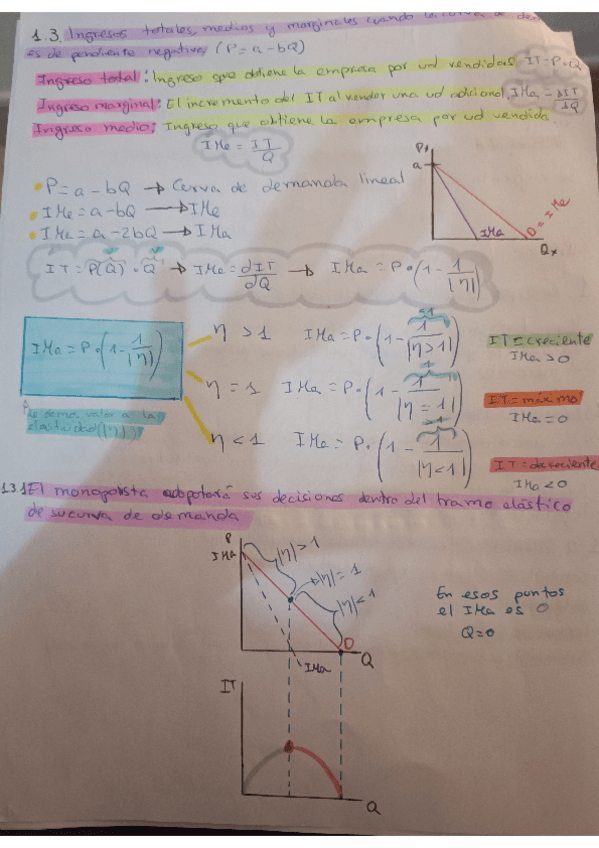 1.3. Ingresos totales, medios y marginales cuando la curva de
es de pendiente negativa (P=a-bQ)
Ingreso total: Ingreso que obtiene la empresa por ud vendidas IT=P·Q
Ingreso marginal: El incremento del IT al vender una ud adicional IMa = ΔIT/ΔQ
Ingreso medio: Ingreso que obtiene la empresa por ud vendida.
IMe = IT/Q
P=a-bQ → Curva de demanda lineal
IMe=a-bQ → IMe
IMe=a-2bQ → IMa
a
IMa
D=IMe
IT = P(Q)·Q → IMe = dIT/dQ → IMa = P·(1-1/|η|)
IMa = P·(1-1/|η|)
η > 1 IMa = P·(1-1/|η>1|) <1
IT = creciente
IMa > 0
η = 1 IMa = P·(1-1/|η=1|)
IT = máximo
IMa = 0
valor a la
elasticidad (|η|)
η < 1 IMa = P·(1-1/|η<1|) >1
IT = decreciente
IMa < 0
1.3.1 El monopolista adopotará sus decisiones dentro del tramo elástico
de su curva de demanda
P
IMa
|η|>1
|η|=1
|η|<1
D
Q
IMa
En esos puntos
el IMa es 0
Q=0
IT
Q